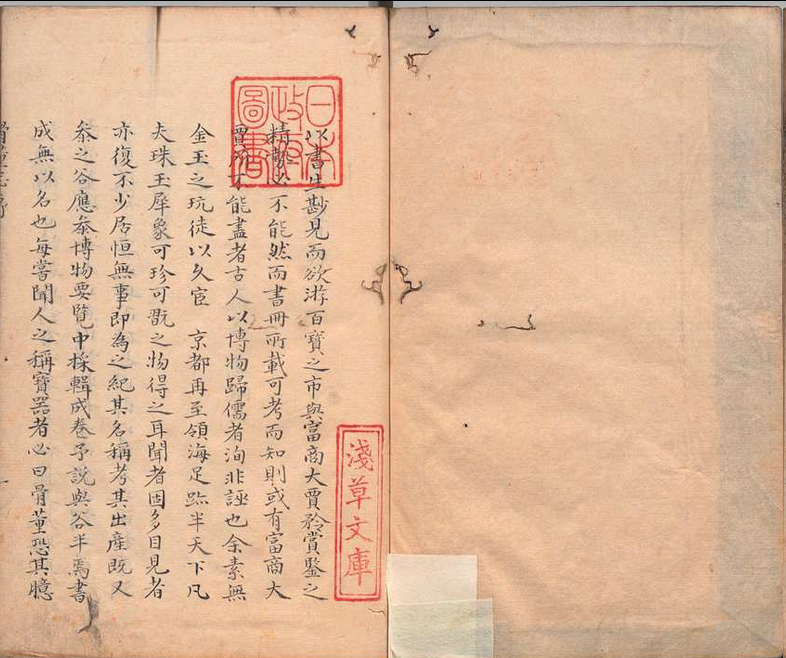 以書生尠見而欲游百寶之市與富商大賈矜賞鑒之
精勢必不能然而書冊所載可考而知則或有富商大
賈所不能盡者古人以博物歸儒者洵非誣也余素無
金玉之玩徒以久宦 京都再至領海足跡半天下凡
夫珠玉犀象可珍可翫之物得之耳聞者固多目見者
亦復不少居恒無事即為之紀其名稱考其出產既又
叅之谷應泰博物要覽中採輯成卷予說與谷半焉書
成無以名也每嘗聞人之稱寶器者必曰骨董恐其臆
日本
政府
圖書
淺草文庫